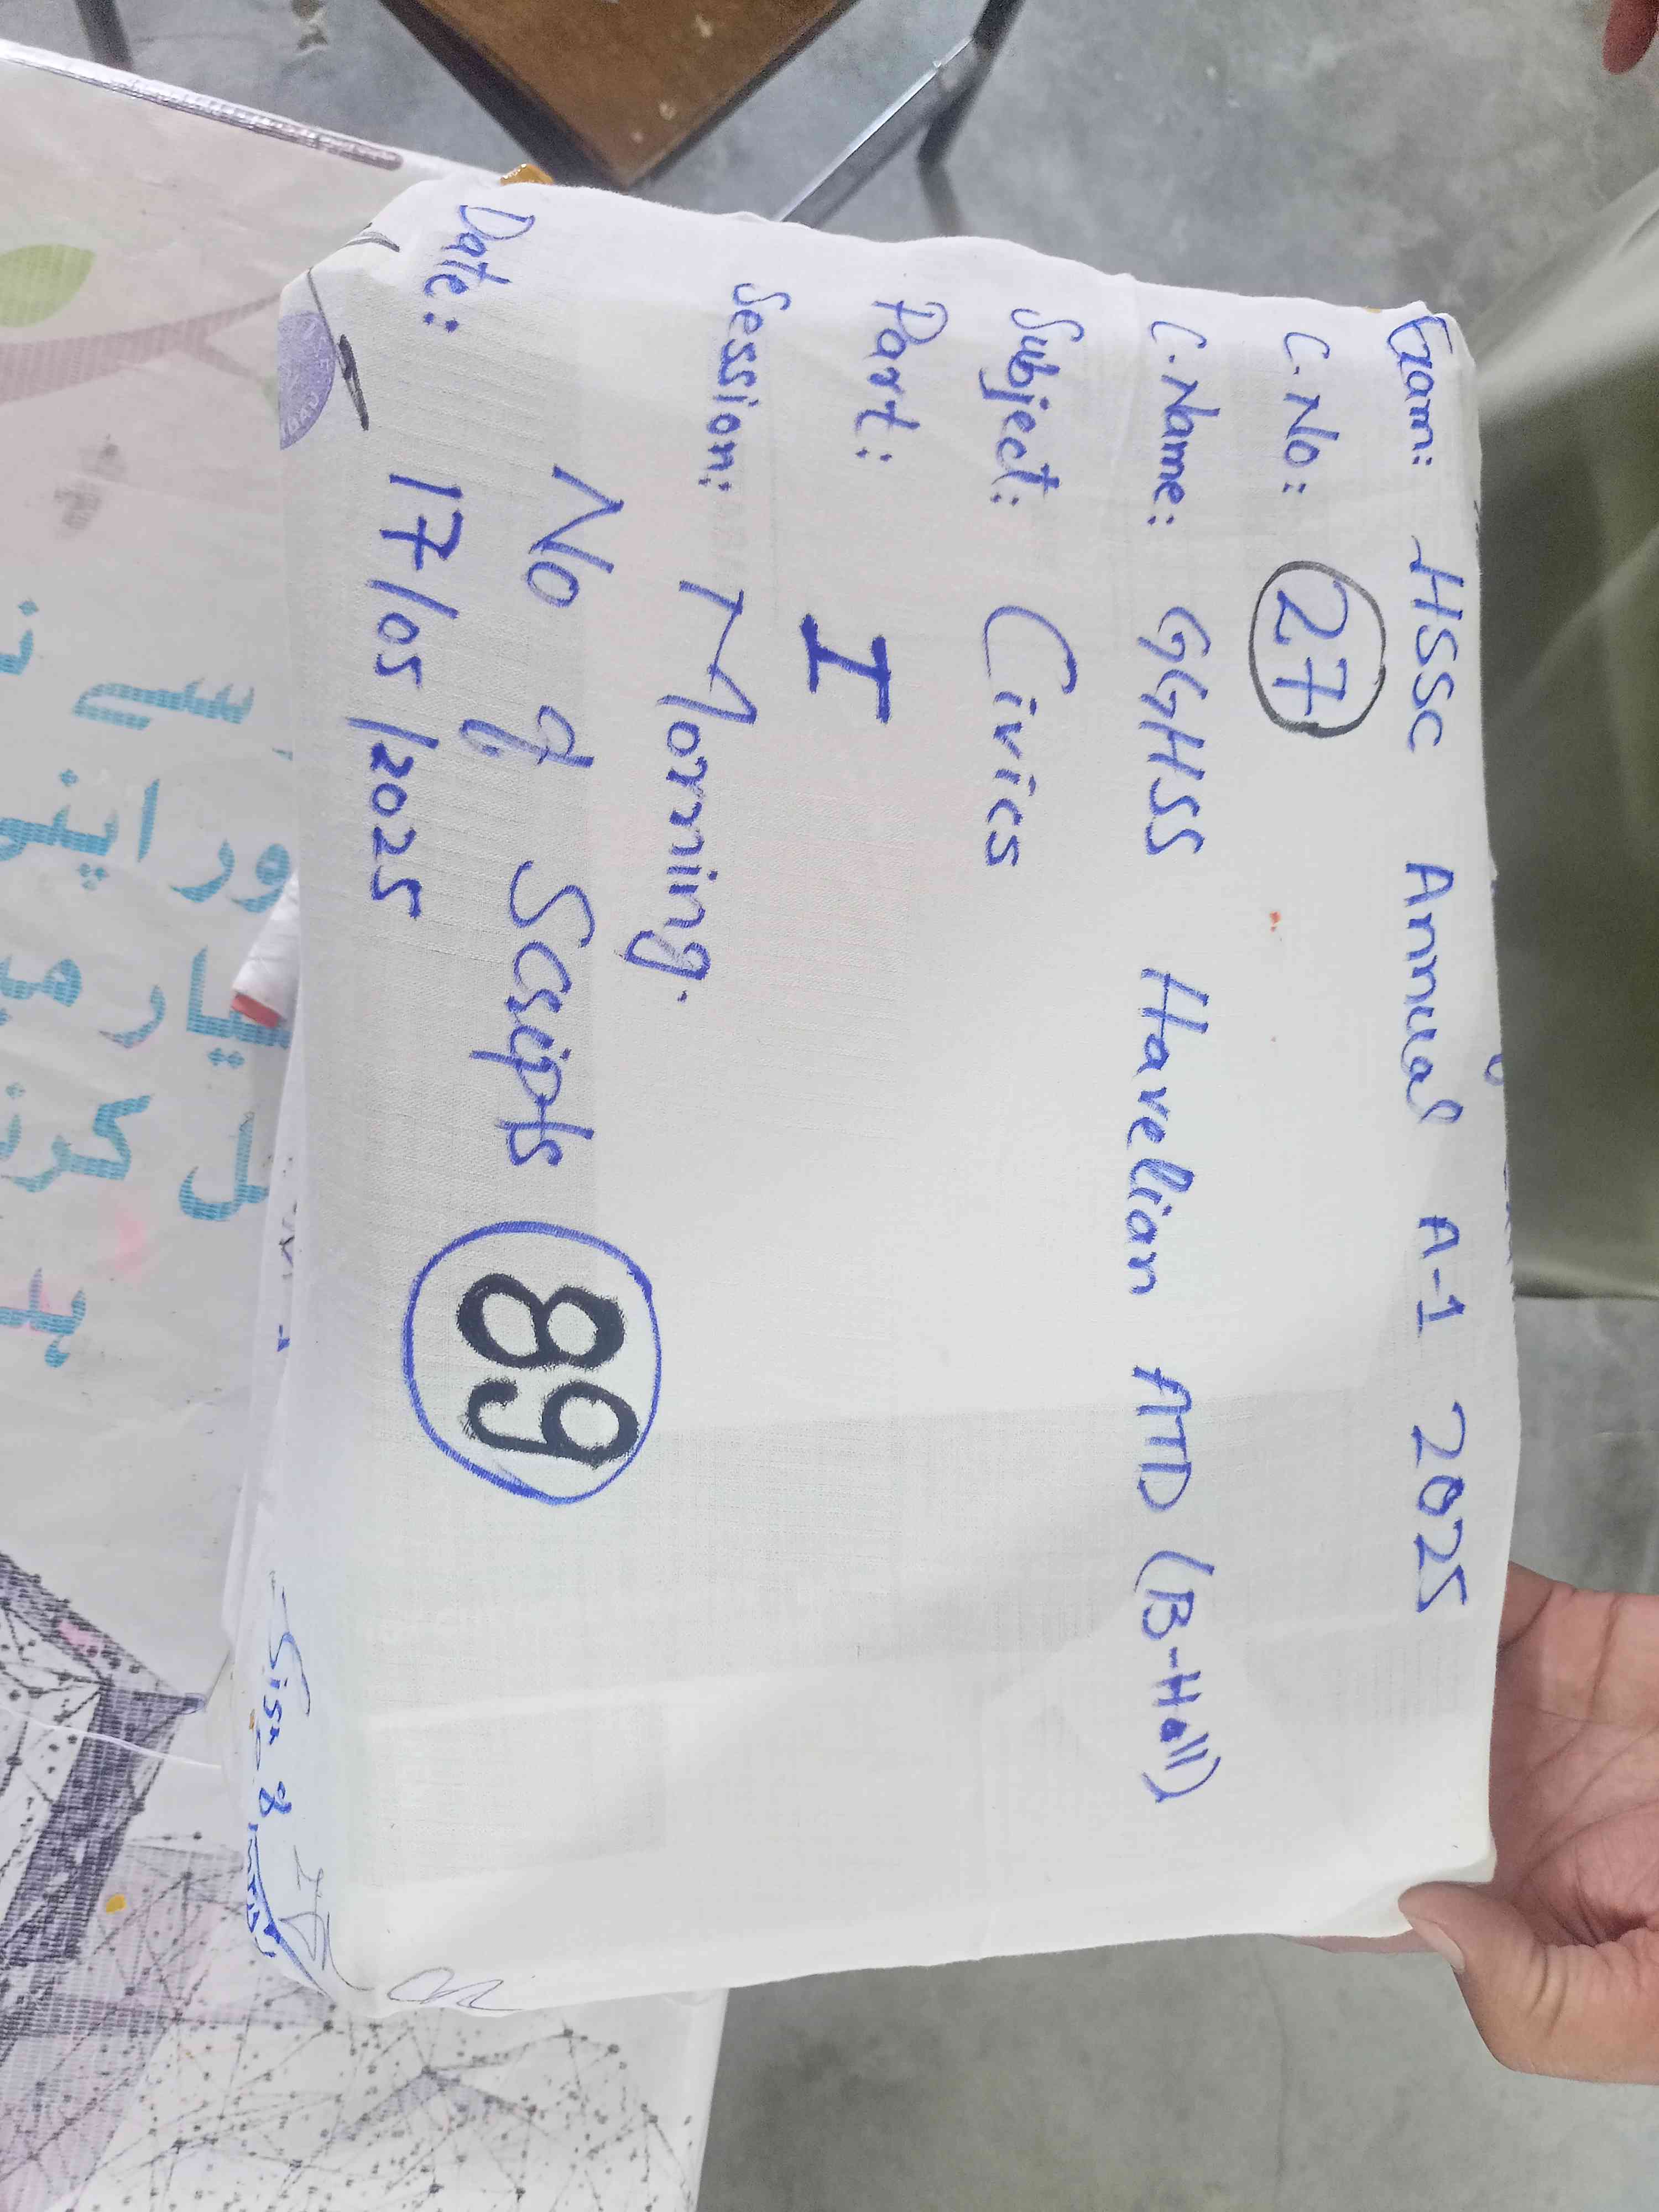 Exam: HSSC Annual A-1 2025
C.No: 27
C.Name: GGHSS Havelian ATD (B-Hall)
Subject: Civics
Part: I
Session: Morning.
No of Scripts 89
Date: 17/05/2025